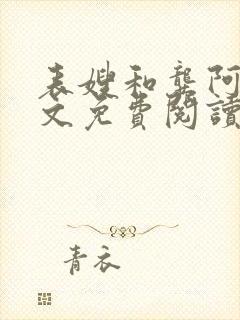 表嫂和龔阿
文免費閱讀
青衣